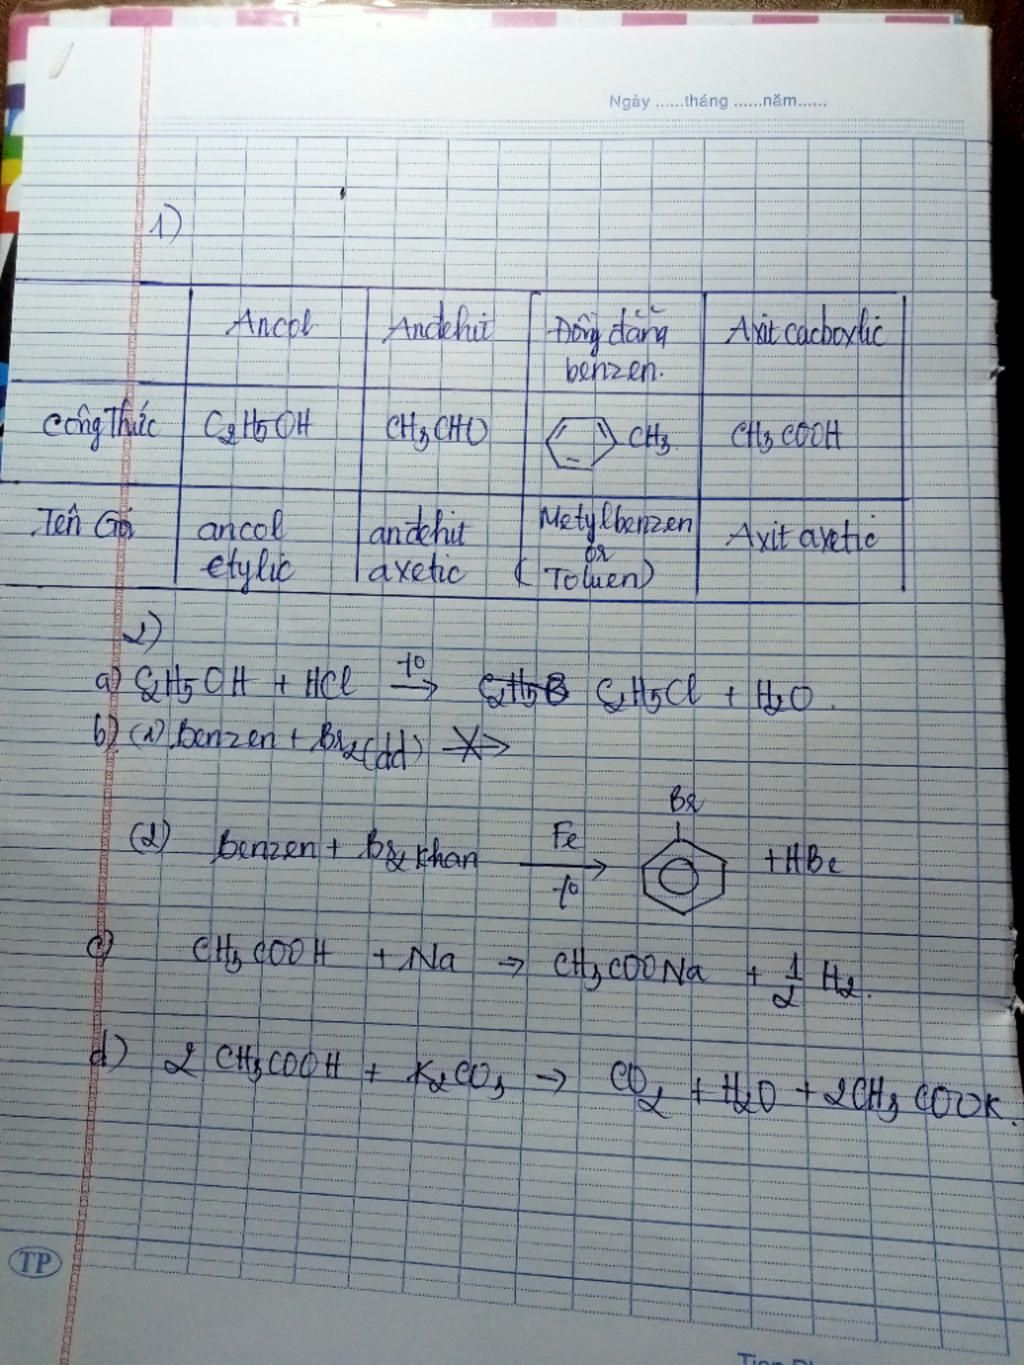 Ngày ......tháng ......năm......
1)
Ancol Anđehit Đồng đẳng benzen. Axit cacboxlic
Công Thức C2H5OH CH3CHO CH3 CH3COOH
Tên Gọi ancol etylic anđehit axetic Metylbenzen or (Toluen) Axit axetic
2)
a) C2H5OH + HCl t° → C2H5Cl + H2O.
b) (1) Benzen + Br2(dd) ↛
(2) Benzen + Br2 khan Fe t° → Br + HBr
c) CH3COOH + Na → CH3COONa + 1/2 H2.
d) 2 CH3COOH + K2CO3 → CO2 + H2O + 2CH3COOK.
TP